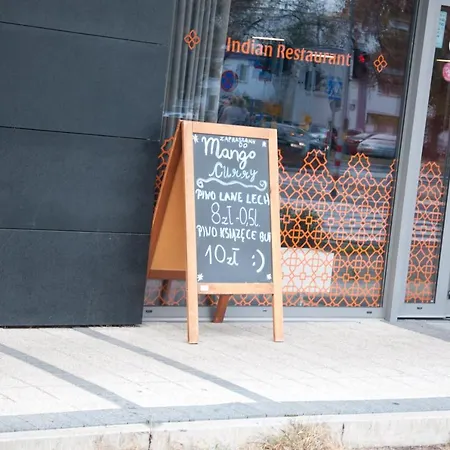 Indian Restaurant
ZAPRASZAMY
DO
Mango
CURRY
PIWO LANE LECH
8zł-0,5l.
PIWO KSIĄŻĘCE BUT
10zł :)